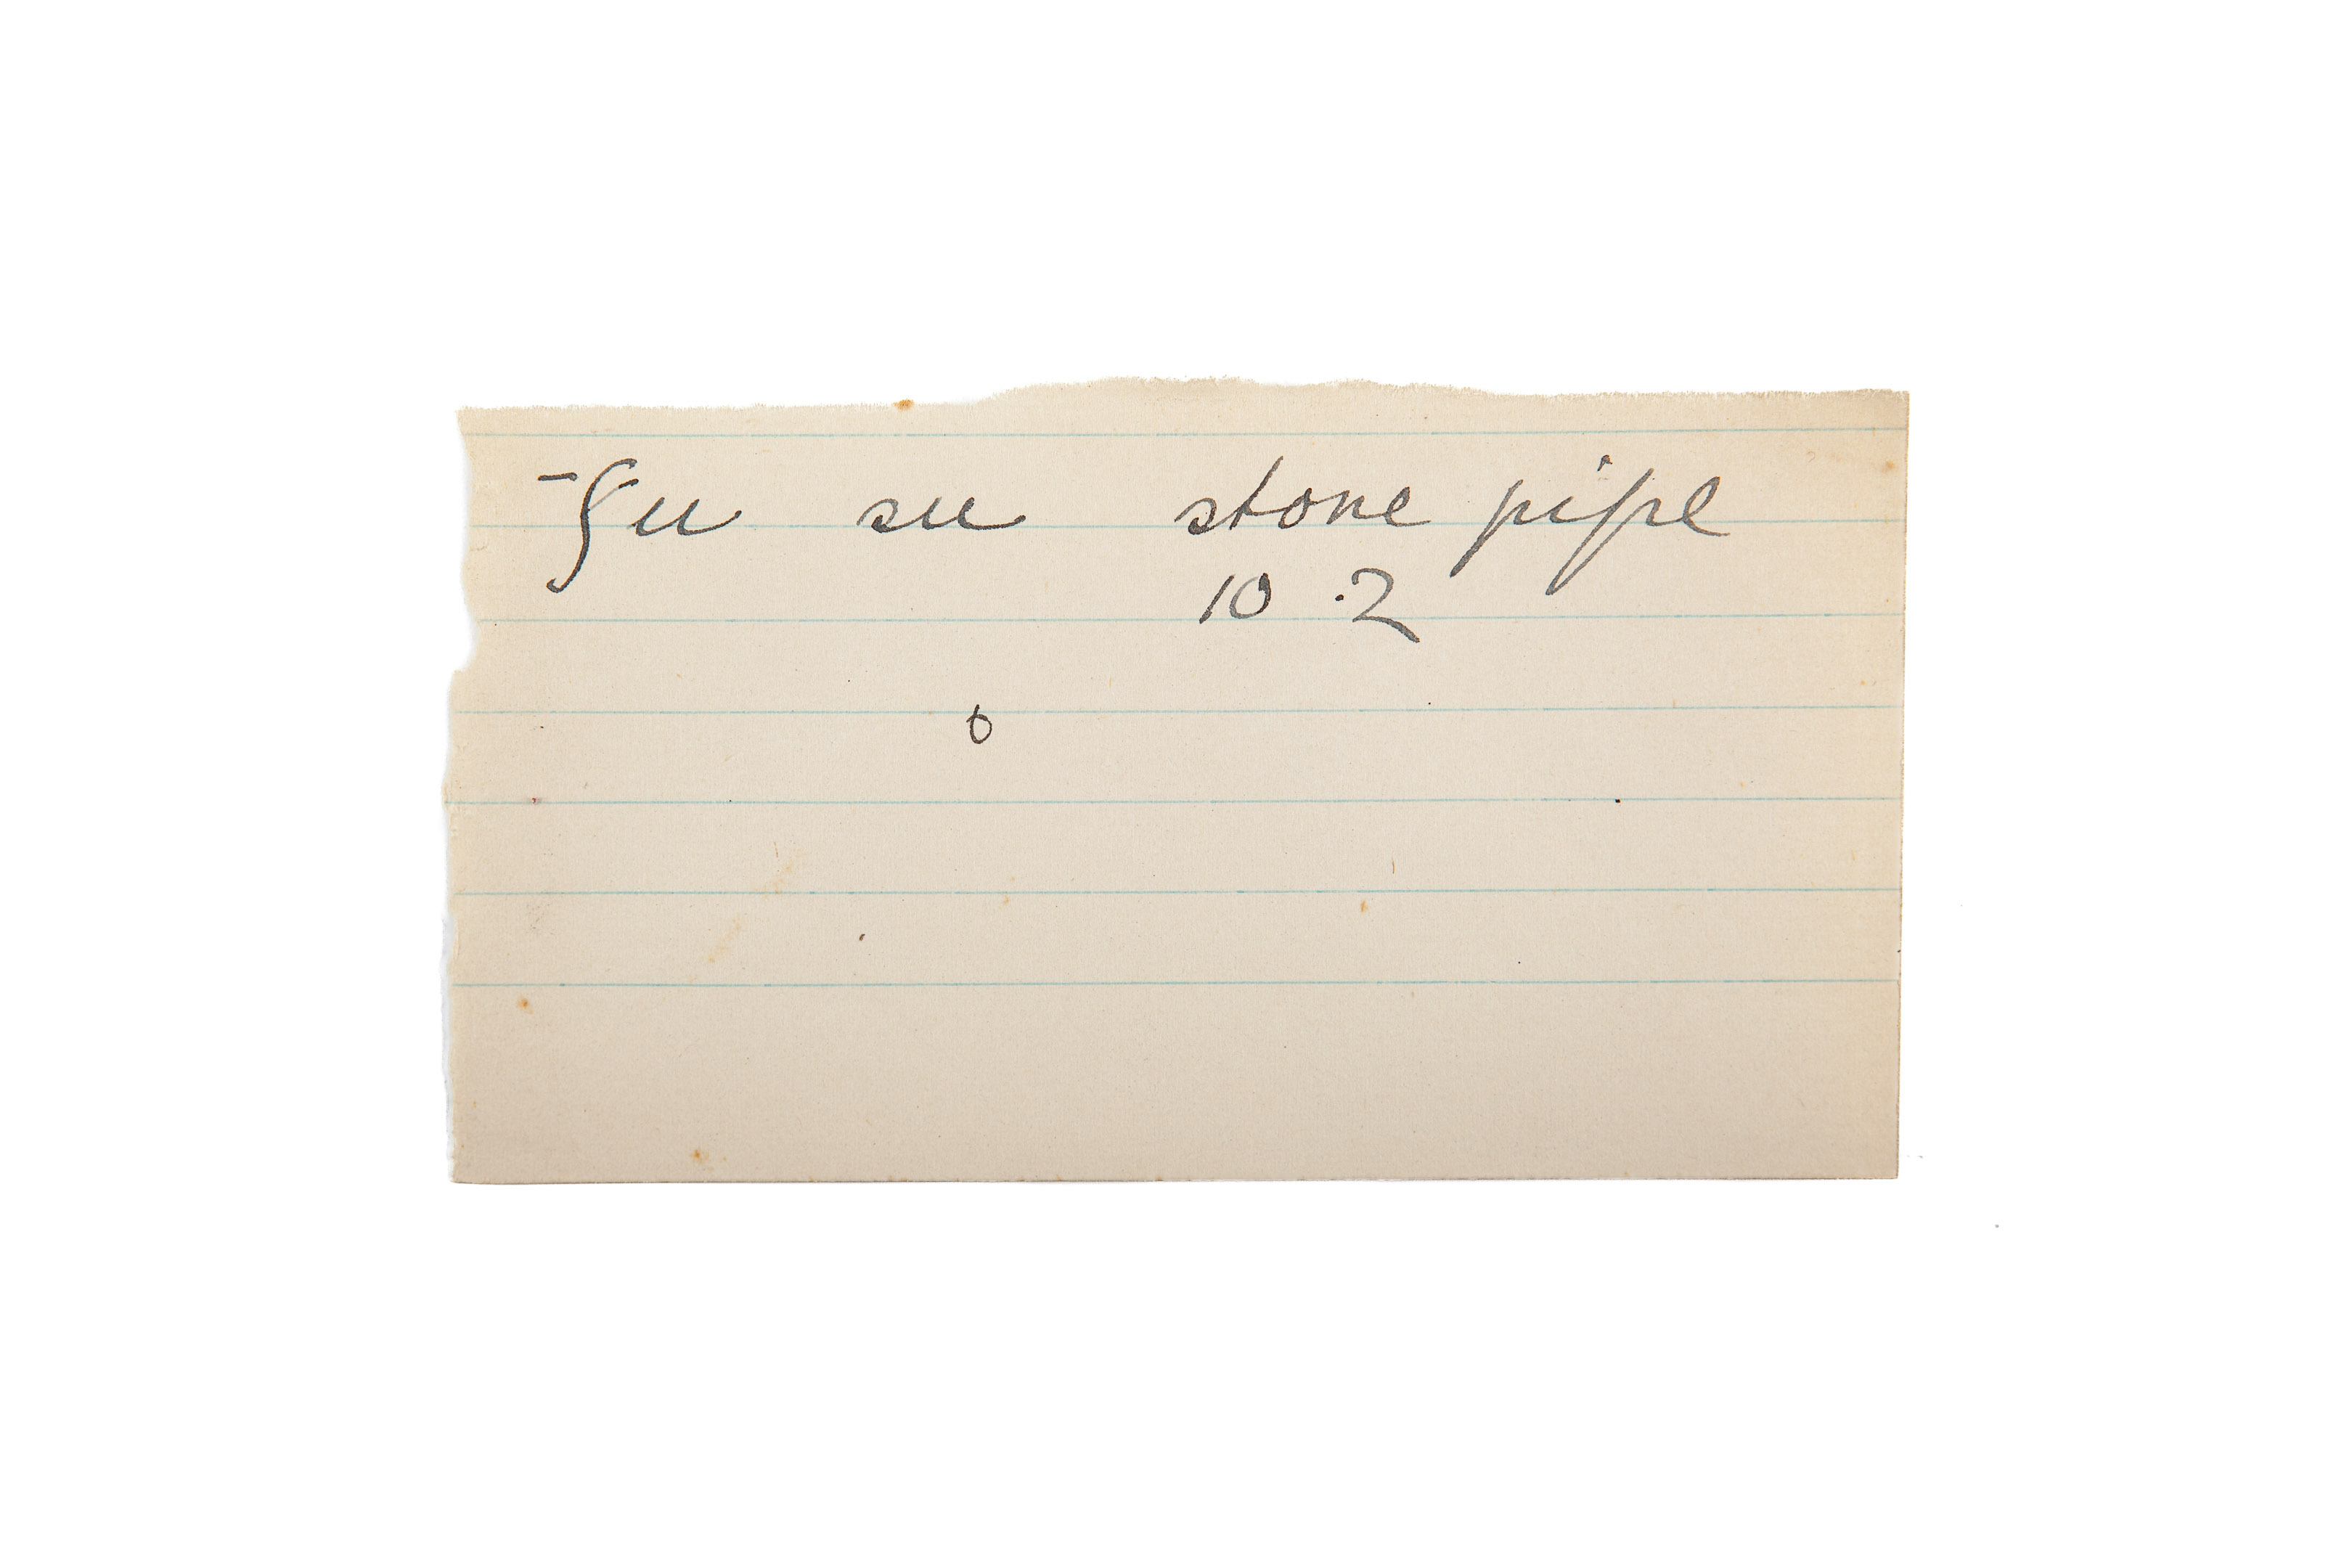 ‾ʃu su stone pipe
10 .2
o